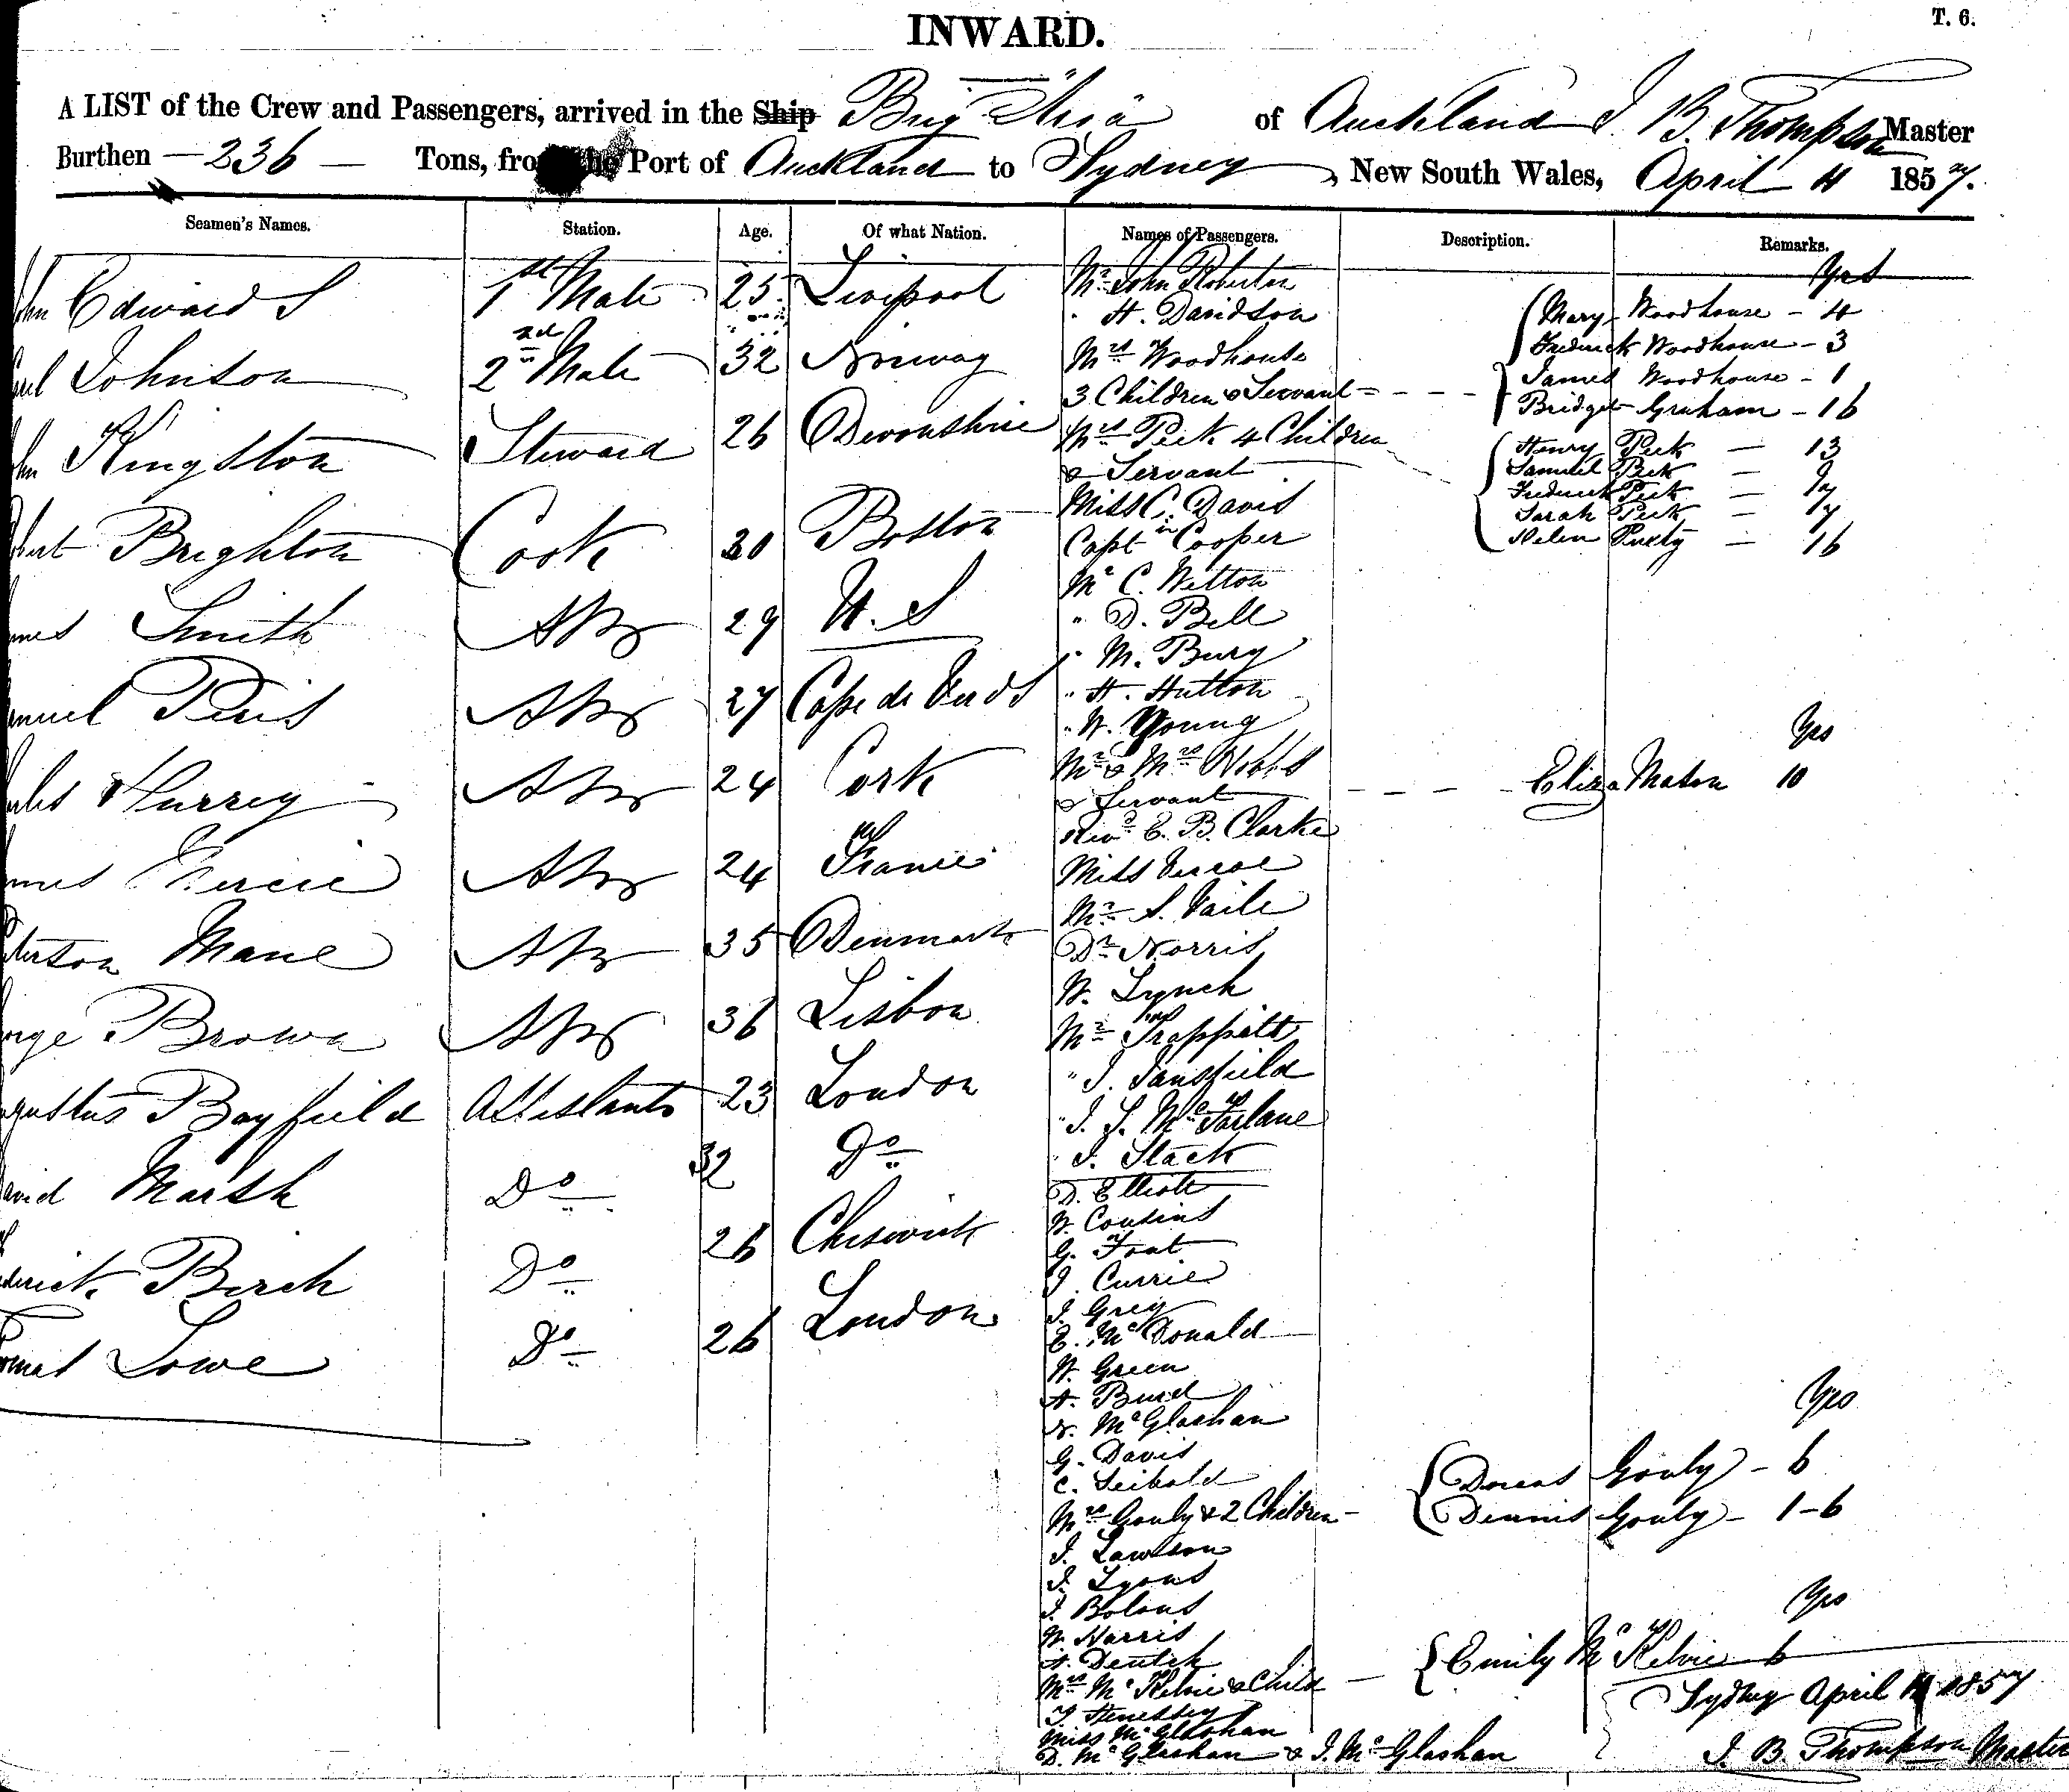 INWARD.
T. 6.
A LIST of the Crew and Passengers, arrived in the Ship Brig Asia of Auckland J. B. Thompson Master
Burthen — 236 — Tons, from the Port of Auckland to Sydney, New South Wales, April 11 1857.
Seamen's Names. Station. Age. Of what Nation. Names of Passengers. Description. Remarks.
Edwards 1st Mate 25 Liverpool
Johnson 2nd Mate 32 Norway
Kingston Steward 26 Devonshire
Brighton Cook 30 Boston
Smith AB 29 U. S
AB 27 Cape de Verds
AB 24 Cork
AB 24 France
Mane AB 35 Denmark
Brown AB 36 Lisbon
Bayfield Assistants 23 London
Marsh Do 32 Do
Birch Do 26 Chiswick
Lowe Do 26 London
Mr John Roberton
" H. Davidson
Mrs Woodhouse
3 Children & Servant
Mrs Peek 4 Children
& Servant
Miss C. Davis
Captin Cooper
Mr C. Wetton
" D. Bell
" M. Bury
" H. Hutton
" W. Young
Mr & Mrs Hobbs
& Servant
Revd E. B. Clarke
Miss
Mr S. Vaile
Dr Norris
W. Lynch
Mr Trappitt
" J. Tansfield
" J. S. McFarlane
" J. Stack
D. Elliott
W. Cousins
G.
J. Currie
J. Grey
E. McDonald
W. Green
A. Burd
N. McGlashan
G. Davis
C. Seibold
Mrs Gouly & 2 Children
J. Lawson
J. Lyons
J. Bolans
W. Harris
A. Deutch
Mrs McKelvie & Child
T. Henessey
Miss McGlashan
D. McGlashan & J. McGlashan
Yrs
Mary Woodhouse - 4
Frederick Woodhouse - 3
James Woodhouse - 1
Bridget Graham - 16
Henry Peek — 13
Samuel Peek — 9
Frederick Peek — 7
Sarah Peek — 7
Helen — 16
Yrs
Eliza Mason 10
Yrs
Dorcas Gouly - 6
Dennis Gouly - 1-6
Yrs
Emily McKelvie 6
Sydney April 11 1857
J. B. Thompson Master